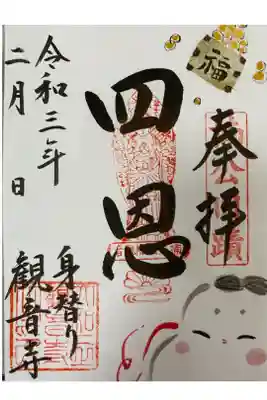 奉拝
福
四恩
令和三年
二月 日
身替り
観音寺